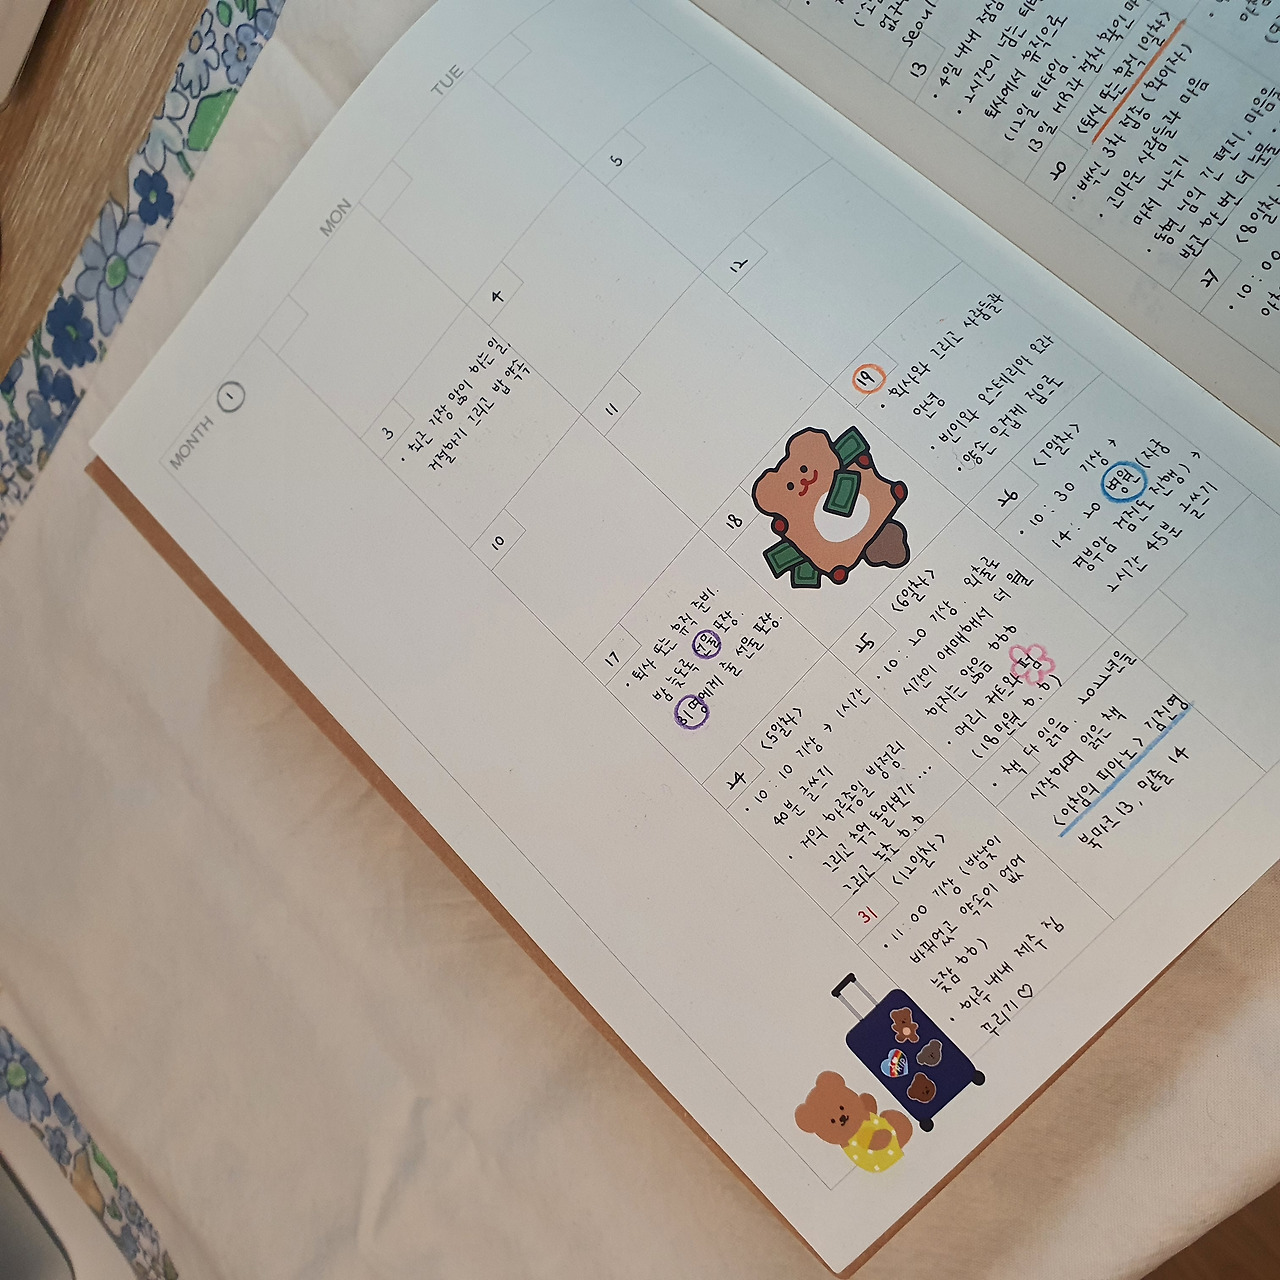 MONTH 1
MON
TUE
3
· 최근 가장 많이 하는 일,
거절하기 그리고 밥 약속
4
5
10
11
12
17
· 퇴사 또는 휴직 준비.
밤 늦도록 선물 포장.
31명에게 줄 선물 포장.
18
19
· 회사와 그리고 사람들과
안녕
· 빈이와 오스테리아 오라
· 양손 무겁게 집으로
24
<5일차>
· 10:10 기상 → 1시간
40분 글쓰기
· 거의 하루종일 방정리
그리고 추억 돌아보기...
그리고
25
<6일차>
· 10:20 기상 외출로
시간이 애매해서 더 쓸
하지는 않음
· 머리 커트와
(18만원
· 책 다 읽음. 2022년을
시작하며 읽은 책
<아침의 피아노> 김진영
북마크 13, 밑줄 14
26
<7일차>
· 10:30 기상 →
14:20 병원 (자궁
경부암 검진도 진행) →
2시간 45분 글쓰기
31
<12일차>
· 11:00 기상 (밤낮이
바뀌었고 약속이 없어
늦잠
· 하루 내내 제주 짐
꾸리기 ♡
seoul
13
· 4일 내내 점심
· 2시간이 넘는 티타
퇴사에서 휴직으로
(12일 티타임.
13일 HR과 절차 확인
<퇴사 또는 휴직 1일차>
20
· 백신 3차 접종 (화이자)
· 고마운 사람들과 마음
마저 나누기
· 동편 님의 긴 편지, 마음을
받고 한 번 더
27
<8일차
· 10:00